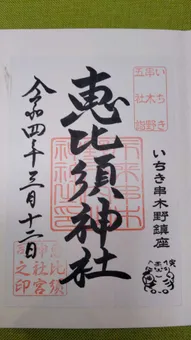 いちき
串木野
五社詣
いちき串木野鎮座
恵比須神社
令和四年三月十二日